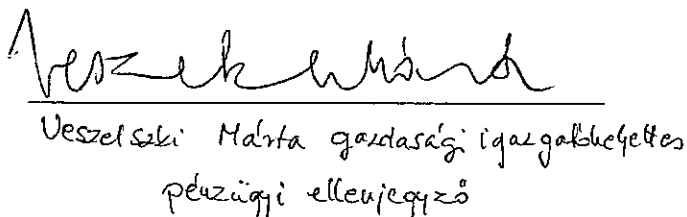 Veszelszki Márta gazdasági igazgatóhelyettes
pénzügyi ellenjegyző